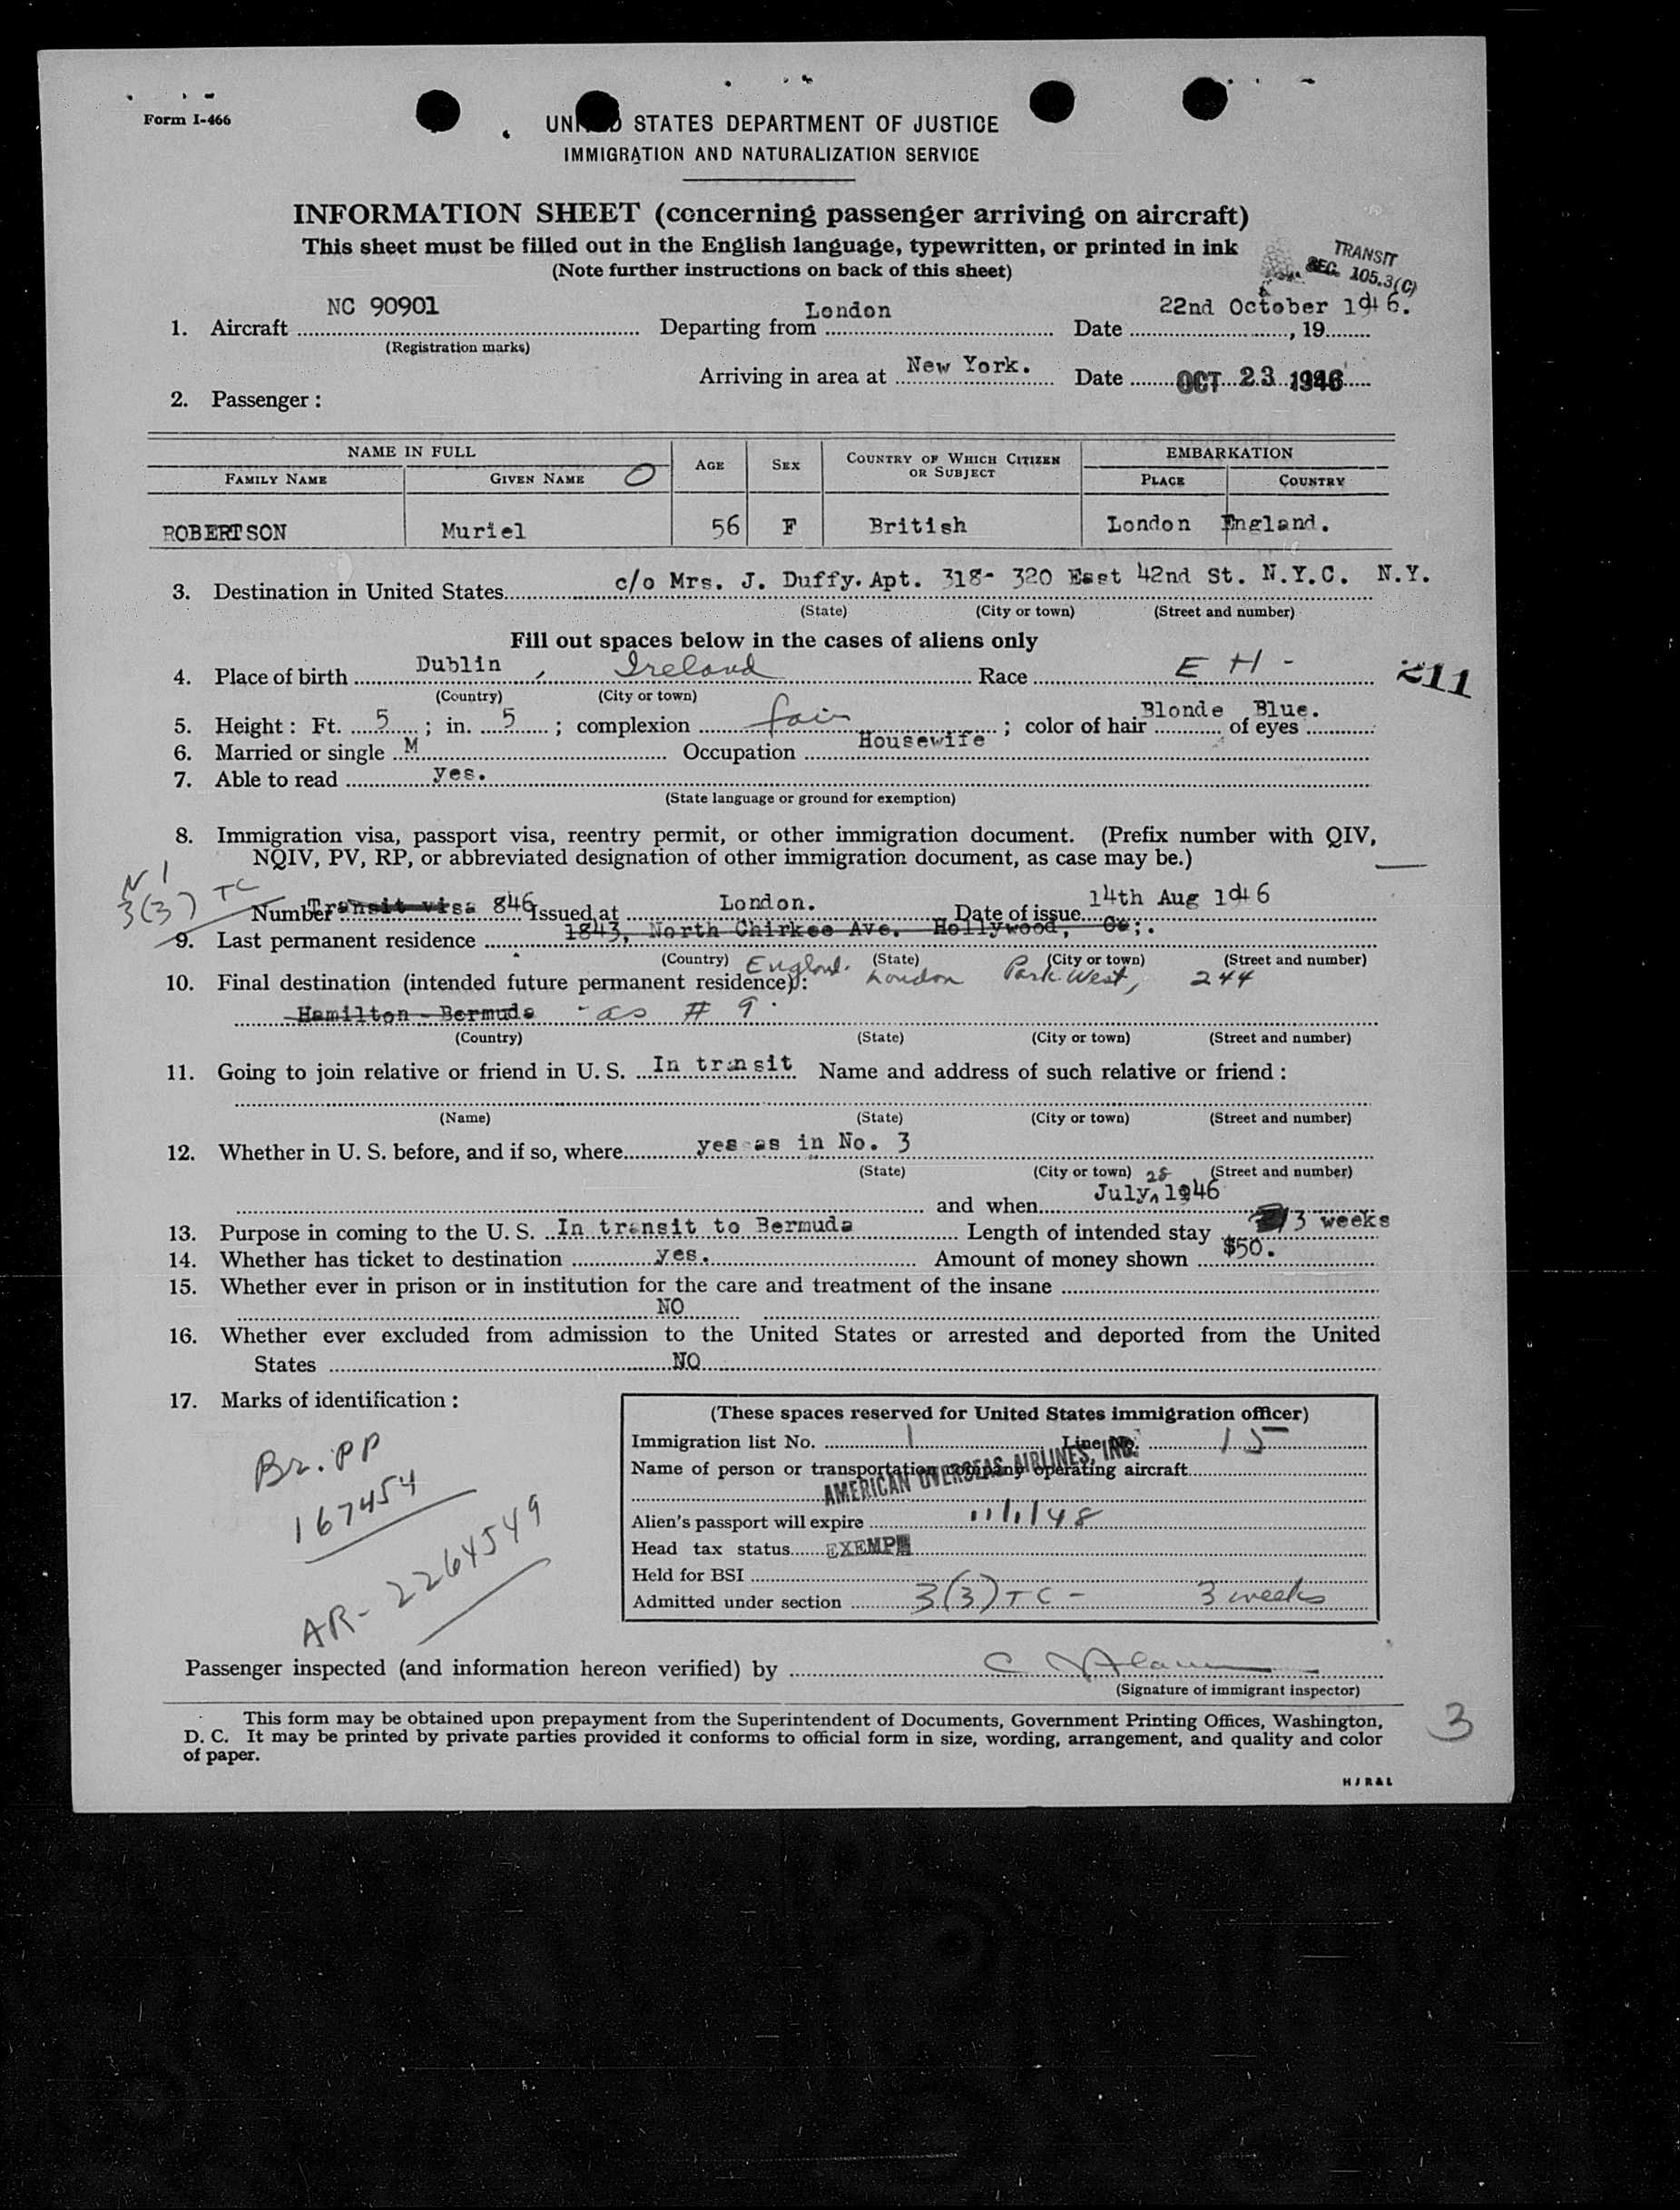 Form I-466
UNITED STATES DEPARTMENT OF JUSTICE
IMMIGRATION AND NATURALIZATION SERVICE
INFORMATION SHEET (concerning passenger arriving on aircraft)
This sheet must be filled out in the English language, typewritten, or printed in ink
(Note further instructions on back of this sheet)
TRANSIT
SEC. 105.3(C)
NC 90901 London 22nd October 1946.
1. Aircraft Departing from Date , 19
(Registration marks)
Arriving in area at New York. Date OCT 23 1946
2. Passenger :
NAME IN FULL AGE SEX COUNTRY OF WHICH CITIZEN OR SUBJECT EMBARKATION
FAMILY NAME GIVEN NAME PLACE COUNTRY
ROBERTSON Muriel 56 F British London England.
3. Destination in United States c/o Mrs. J. Duffy. Apt. 318- 320 East 42nd St. N.Y.C. N.Y.
(State) (City or town) (Street and number)
Fill out spaces below in the cases of aliens only
4. Place of birth Dublin, Ireland Race E H - 211
(Country) (City or town)
5. Height : Ft. 5 ; in. 5 ; complexion fair ; color of hair Blonde of eyes Blue.
6. Married or single M Occupation Housewife
7. Able to read yes.
(State language or ground for exemption)
8. Immigration visa, passport visa, reentry permit, or other immigration document. (Prefix number with QIV,
NQIV, PV, RP, or abbreviated designation of other immigration document, as case may be.)
3(3) TC
Number Transit visa 846 Issued at London. Date of issue 14th Aug 1946
9. Last permanent residence 1843, North Chirkee Ave. Hollywood,
(Country) (State) (City or town) (Street and number)
England. London Park West, 244
10. Final destination (intended future permanent residence):
Hamilton - Bermuda - as # 9.
(Country) (State) (City or town) (Street and number)
11. Going to join relative or friend in U. S. In transit Name and address of such relative or friend :
(Name) (State) (City or town) (Street and number)
12. Whether in U. S. before, and if so, where yes as in No. 3
(State) (City or town) (Street and number)
and when July 28 1946
13. Purpose in coming to the U. S. In transit to Bermuda Length of intended stay 3 weeks
14. Whether has ticket to destination yes. Amount of money shown $50.
15. Whether ever in prison or in institution for the care and treatment of the insane
NO
16. Whether ever excluded from admission to the United States or arrested and deported from the United
States NO
17. Marks of identification :
Br. PP
167454
AR- 2264549
(These spaces reserved for United States immigration officer)
Immigration list No. 1 Line No. 15
Name of person or transportation company operating aircraft
AMERICAN OVERSEAS AIRLINES, INC.
Alien's passport will expire 11/1/48
Head tax status EXEMPT
Held for BSI
Admitted under section 3(3) TC - 3 weeks
Passenger inspected (and information hereon verified) by
(Signature of immigrant inspector)
This form may be obtained upon prepayment from the Superintendent of Documents, Government Printing Offices, Washington,
D. C. It may be printed by private parties provided it conforms to official form in size, wording, arrangement, and quality and color
of paper.
3
HJR&L